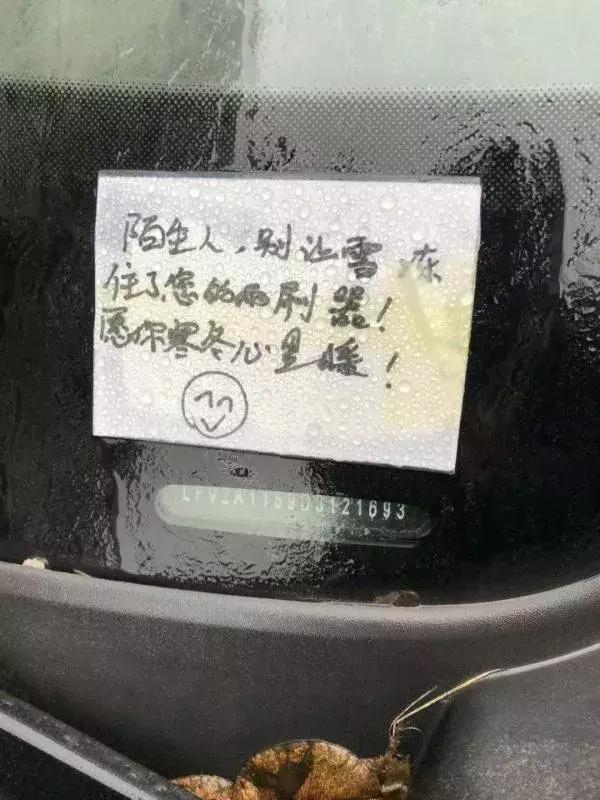 陌生人，别让雪冻
住了您的雨刷器！
愿你寒冬心里暖！